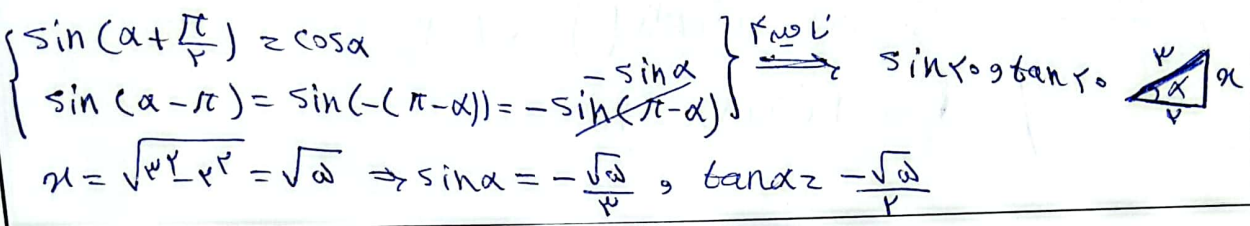 sin(α+π/۲) = cosα
sin(α-π) = sin(-(π-α)) = -sin(π-α) -sinα
ناحیه ۴ ⇒ sin<۰ و tan<۰
۳ α x ۲
x = √(۳^۲-۲^۲) = √۵ ⇒ sinα = -√۵/۳ و tanα = -√۵/۲